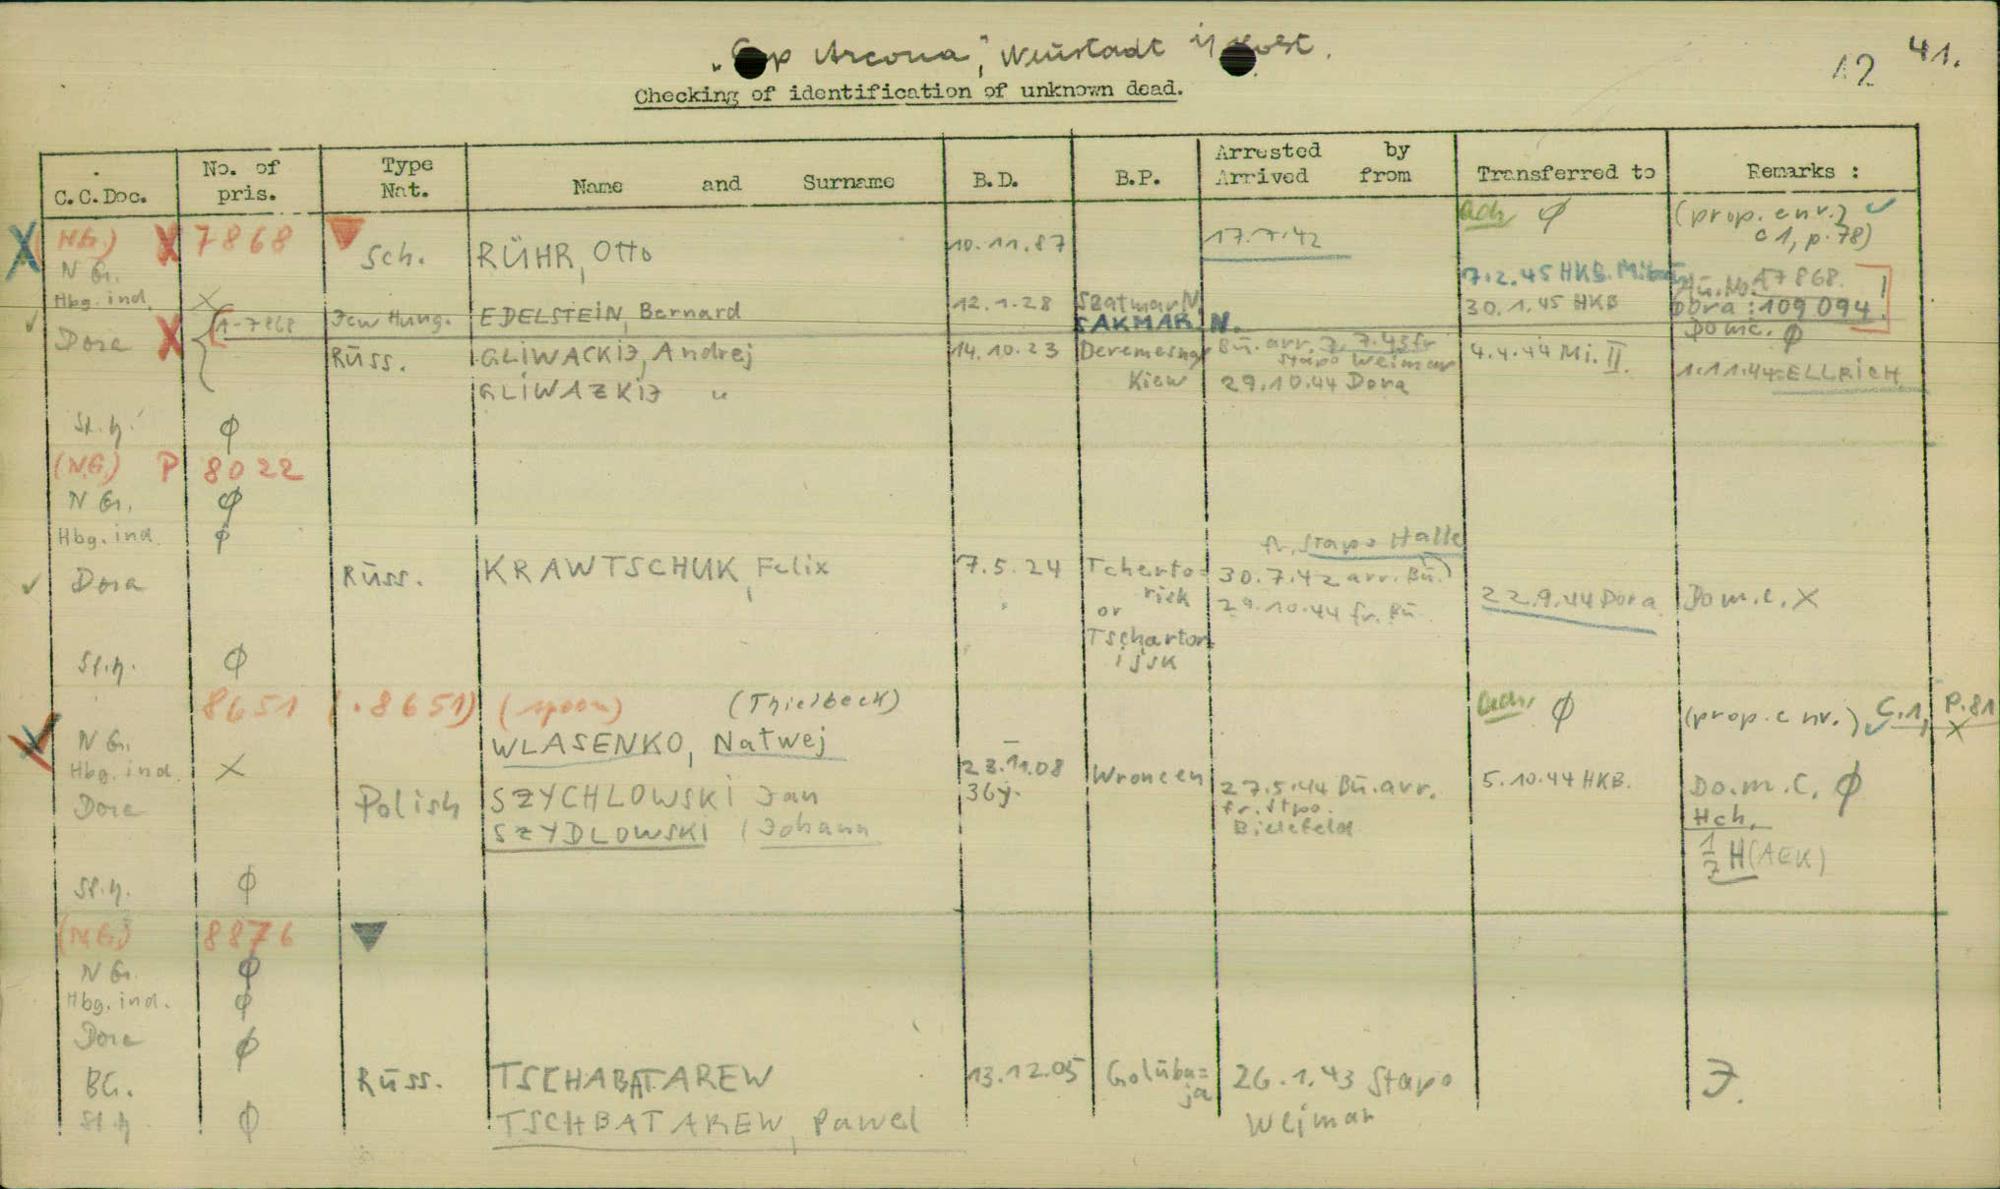 "Cap Arcona", Neustadt i/ Holst.
12 41.
Checking of identification of unknown dead.
C.C.Doc. No. of pris. Type Nat. Name and Surname B.D. B.P. Arrested by Arrived from Transferred to Remarks :
(NG.) X 7868 ach ϕ (prop. env.) ✓
c 1, p. 78)
N G. Sch. RÜHR, Otto 10.11.87 17.7.42
7.2.45 HKB. 47868.
Hbg. ind. X Jew Hung. EDELSTEIN, Bernard 12.1.28 Szatmar N. 30.1.45 HKB Dora : 109 094 !
A-7868 SAKMAR N. Do m c. ϕ
Dora X Russ. GLIWACKIJ, Andrej 14.10.23 Deremesna Bu. arr. 7.7.43 fr Stapo Weimar 4.4.44 Mi. II. 1.11.44 ELLRICH
GLIWAZKIJ " Kiew 29.10.44 Dora
St. h. ϕ
(NG) P 8022
N G. ϕ
Hbg. ind. ϕ
fr. Stapo Halle
✓ Dora Russ. KRAWTSCHUK, Felix 7.5.24 Tcherto= 30.7.42 arr. Bu.)
risk or 29.10.44 fr. Bu. 22.9.44 Dora Do m. c. X
Tscharton
ijsk
St. h. ϕ
8651 (.8651) (spoon) (Thielbeck) ach. ϕ (prop. c nr.) ✓ C.1, P.81
X
N G. WLASENKO, Natwej
Hbg. ind. X 23.11.08 Wroncen 5.10.44 HKB.
Dora Polish SZYCHLOWSKI Jan 36y. 27.5.44 Bu. arr. Do. m. C. ϕ
fr. Stpo. Hch.
SZYDLOWSKI (Johann Bielefeld
1/7 H (AEK)
St. h. ϕ
(NG) 8876
N G. ϕ
Hbg. ind. ϕ
Dora ϕ
BG. Russ. TSCHABATAREW 13.12.05 Golubu= 26.1.43 Stapo J.
ja
St. h ϕ TSCHBATAREW, Pawel Weimar